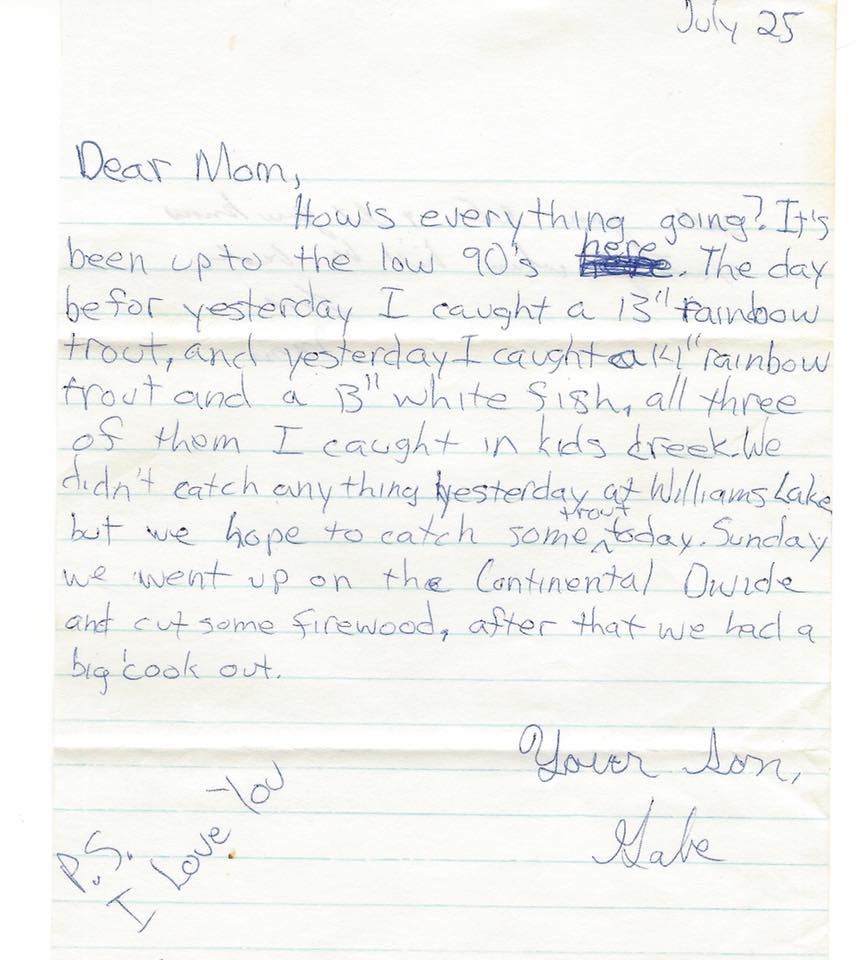 July 25
Dear Mom,
How's everything going? It's
been up to the low 90's here. The day
befor yesterday I caught a 13" rainbow
trout, and yesterday I caught a 14" rainbow
trout and a 13" white fish, all three
of them I caught in kids creek. We
didn't catch anything yesterday at Williams Lake
but we hope to catch some trout today. Sunday
we went up on the Continental Divide
and cut some firewood, after that we had a
big cook out.
Your Son,
Gabe
P.S.
I Love You